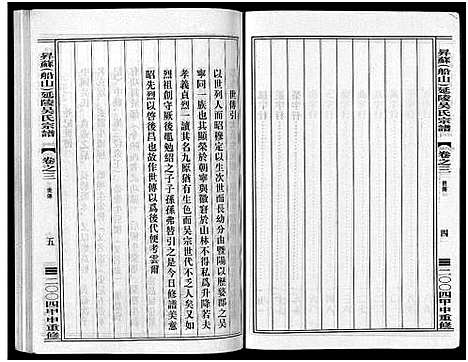 昇蘇(船山)延陵吴氏宗譜
卷之三
世傳
四
二〇〇四甲申重修
世傳引
以世列人而昭穆定以生次世而長幼分由暨陽以歷婺郡之吴
寧同一族也其顯榮於朝寧與徽容於山林不得私爲升降若夫
孝義貞烈一讀其名猶有生色而吴宗世代不乏其人自茲以往
烈祖創守厥後勉紹之子子孫孫弗替引之是今日修譜美意
昭先烈以啓後昌也故作世傳以爲後代便考雲爾
昇蘇(船山)延陵吴氏宗譜
卷之三
世傳
五
二〇〇四甲申重修